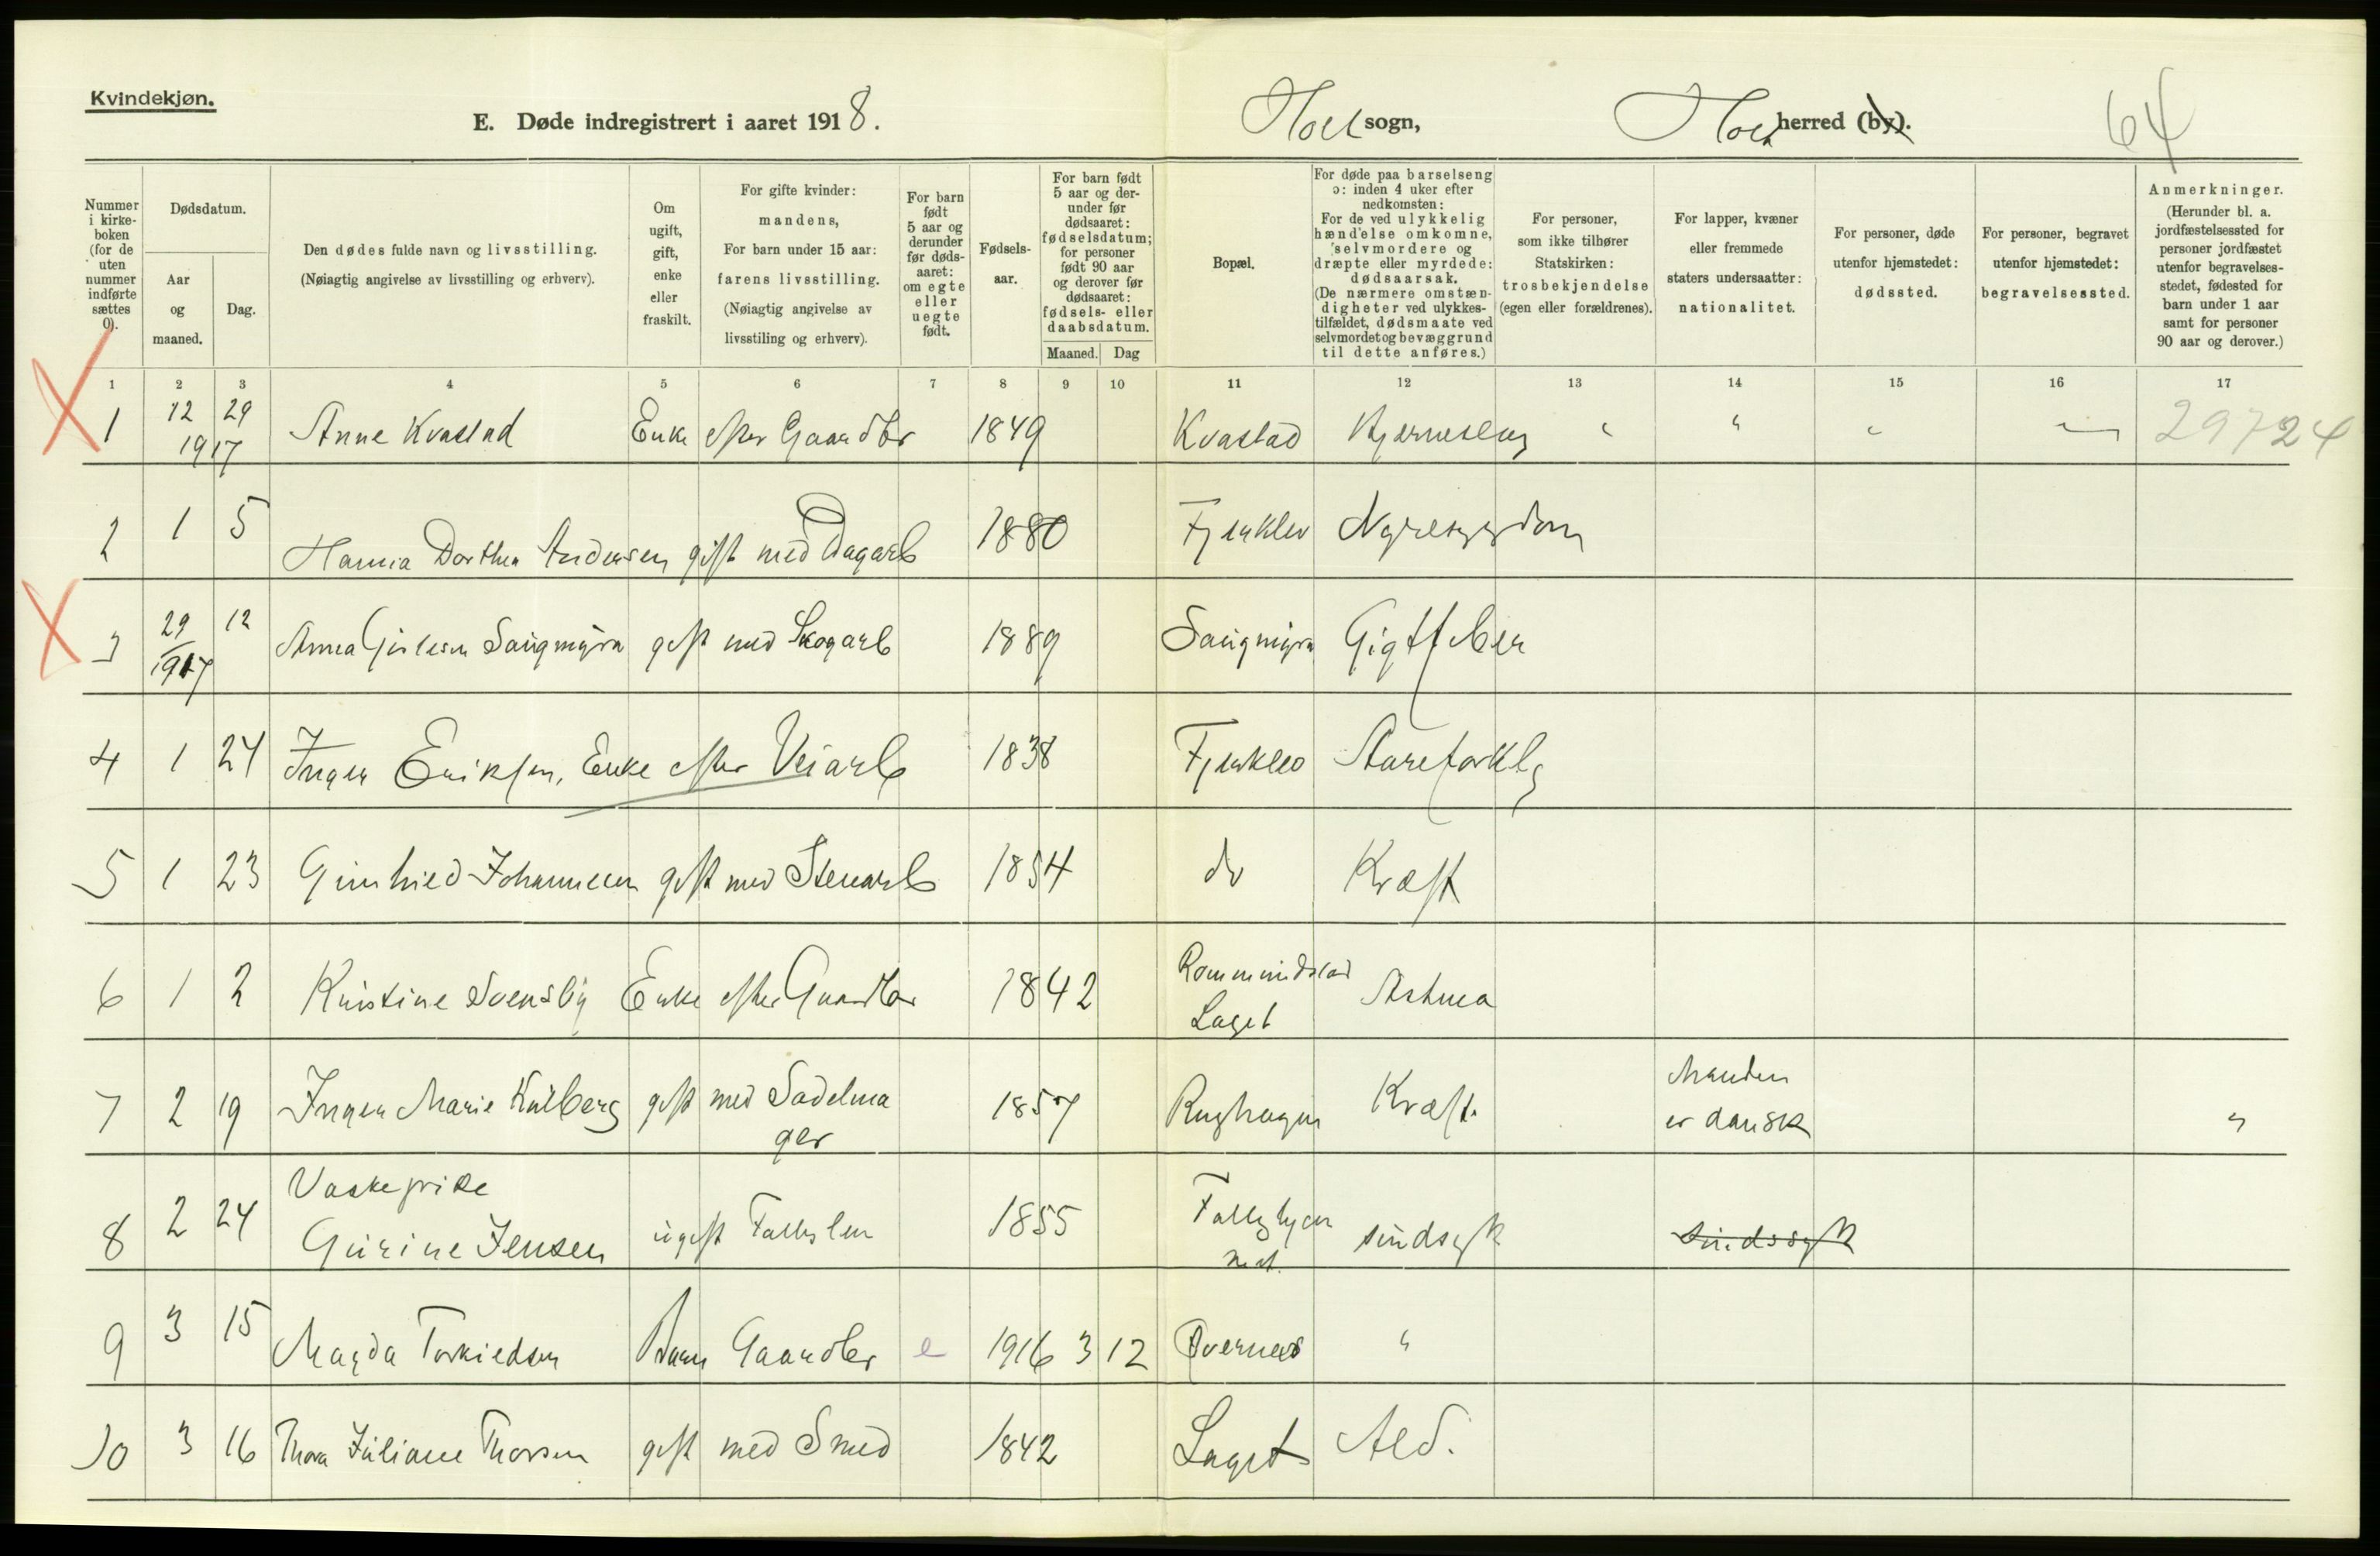 Kvindekjøn.
E. Døde indregistrert i aaret 1918. Holt sogn, Holt herred (by). 64
Nummer i kirkeboken (for de uten nummer indførte sættes 0).
Dødsdatum.
Aar og maaned.
Dag.
Den dødes fulde navn og livsstilling.
(Nøiagtig angivelse av livsstilling og erhverv).
Om ugift, gift, enke eller fraskilt.
For gifte kvinder: mandens,
For barn under 15 aar: farens livsstilling.
(Nøiagtig angivelse av livsstiling og erhverv).
For barn født 5 aar og derunder før dødsaaret: om egte eller uegte født.
Fødselsaar.
For barn født 5 aar og derunder før dødsaaret: fødselsdatum; for personer født 90 aar og derover før dødsaaret: fødsels- eller daabsdatum.
Maaned. Dag
Bopæl.
For døde paa barselseng ɔ: inden 4 uker efter nedkomsten:
For de ved ulykkelig hændelse omkomne, selvmordere og dræpte eller myrdede: dødsaarsak.
(De nærmere omstændigheter ved ulykkestilfældet, dødsmaate ved selvmordet og bevæggrund til dette anføres.)
For personer, som ikke tilhører Statskirken: trosbekjendelse (egen eller forældrenes).
For lapper, kvæner eller fremmede staters undersaatter: nationalitet.
For personer, døde utenfor hjemstedet: dødssted.
For personer, begravet utenfor hjemstedet: begravelsessted.
Anmerkninger.
(Herunder bl. a. jordfæstelsessted for personer jordfæstet utenfor begravelsesstedet, fødested for barn under 1 aar samt for personer 90 aar og derover.)
1 2 3 4 5 6 7 8 9 10 11 12 13 14 15 16 17
1 12 1917 29 Anne Kvastad Enke efter Gaardbr 1849 Kvastad " " " 29724
2 1 5 Dorthea Andersen gift med Dagarb 1880 Fjærklev Nyresygdom
3 29 1917 12 Anna Saugmyra gift med Skogarb 1889 Saugmyra Gigtfeber
4 1 24 Inger Eriksen, Enke efter Veiarb 1838 Fjærklev
5 1 23 Gunhild Johannesen gift med Stenarb 1854 do Kræft
6 1 2 Kristine Svensby Enke efter Gaardbr 1842 Laget Astma
7 2 19 Inger Marie Kulberg gift med Sadelmager 1857 Kræft. Manden er dansk "
8 2 24 Vaskepike Gurine Jensen ugift 1855 sindsyk sindssyk
9 3 15 Magda Torkildsen Barn Gaardbr e 1916 3 12 Øvernes "
10 3 16 Thora Juliane Thorsen gift med Smed 1842 Laget Ald.